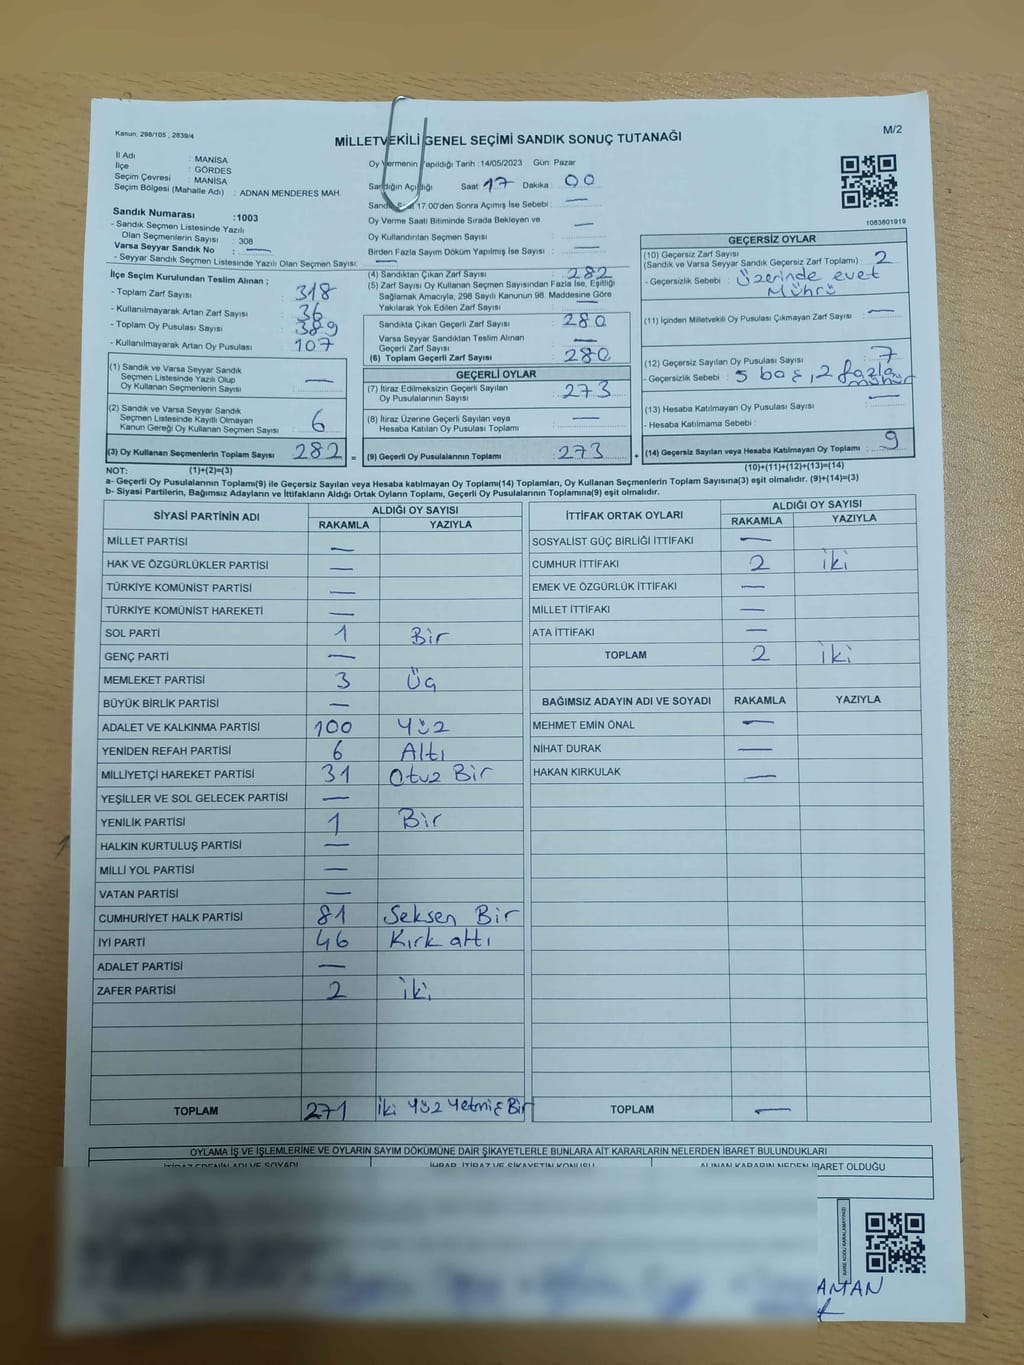 Kanun: 298/105 , 2839/4
M/2
MİLLETVEKİLİ GENEL SEÇİMİ SANDIK SONUÇ TUTANAĞI
İl Adı : MANİSA
İlçe : GÖRDES
Seçim Çevresi : MANİSA
Seçim Bölgesi (Mahalle Adı) : ADNAN MENDERES MAH.
Oy Vermenin Yapıldığı Tarih : 14/05/2023 Gün: Pazar
Sandığın Açıldığı Saat : 17 Dakika : 00
Sandık Saat 17.00'den Sonra Açımış İse Sebebi : —
Oy Verme Saati Bitiminde Sırada Bekleyen ve
Oy Kullandırılan Seçmen Sayısı : —
Birden Fazla Sayım Döküm Yapılmış İse Sayısı : —
1083801919
Sandık Numarası : 1003
- Sandık Seçmen Listesinde Yazılı
Olan Seçmenlerin Sayısı : 308
Varsa Seyyar Sandık No : —
- Seyyar Sandık Seçmen Listesinde Yazılı Olan Seçmen Sayısı: —
İlçe Seçim Kurulundan Teslim Alınan ;
- Toplam Zarf Sayısı : 318
- Kullanılmayarak Artan Zarf Sayısı : 36
- Toplam Oy Pusulası Sayısı : 389
- Kullanılmayarak Artan Oy Pusulası : 107
(1) Sandık ve Varsa Seyyar Sandık
Seçmen Listesinde Yazılı Olup
Oy Kullanan Seçmenlerin Sayısı : —
(2) Sandık ve Varsa Seyyar Sandık
Seçmen Listesinde Kayıtlı Olmayan
Kanun Gereği Oy Kullanan Seçmen Sayısı : 6
(3) Oy Kullanan Seçmenlerin Toplam Sayısı : 282 =
(4) Sandıktan Çıkan Zarf Sayısı : 282
(5) Zarf Sayısı Oy Kullanan Seçmen Sayısından Fazla İse, Eşitliği
Sağlamak Amacıyla, 298 Sayılı Kanunun 98. Maddesine Göre
Yakılarak Yok Edilen Zarf Sayısı : —
Sandıkta Çıkan Geçerli Zarf Sayısı : 280
Varsa Seyyar Sandıktan Teslim Alınan
Geçerli Zarf Sayısı : —
(6) Toplam Geçerli Zarf Sayısı : 280
GEÇERLİ OYLAR
(7) İtiraz Edilmeksizin Geçerli Sayılan
Oy Pusulalarının Sayısı : 273
(8) İtiraz Üzerine Geçerli Sayılan veya
Hesaba Katılan Oy Pusulası Toplamı : —
(9) Geçerli Oy Pusulalarının Toplamı : 273 +
GEÇERSİZ OYLAR
(10) Geçersiz Zarf Sayısı
(Sandık ve Varsa Seyyar Sandık Geçersiz Zarf Toplamı) : 2
- Geçersizlik Sebebi : Üzerinde evet
Mührü
(11) İçinden Milletvekili Oy Pusulası Çıkmayan Zarf Sayısı : —
(12) Geçersiz Sayılan Oy Pusulası Sayısı : 7
- Geçersizlik Sebebi : 5 boş, 2 fazla
mühür
(13) Hesaba Katılmayan Oy Pusulası Sayısı : —
- Hesaba Katılmama Sebebi :
(14) Geçersiz Sayılan veya Hesaba Katılmayan Oy Toplamı : 9
NOT: (1)+(2)=(3)
(10)+(11)+(12)+(13)=(14)
a- Geçerli Oy Pusulalarının Toplamı(9) ile Geçersiz Sayılan veya Hesaba katılmayan Oy Toplamı(14) Toplamları, Oy Kullanan Seçmenlerin Toplam Sayısına(3) eşit olmalıdır. (9)+(14)=(3)
b- Siyasi Partilerin, Bağımsız Adayların ve İttifakların Aldığı Ortak Oyların Toplamı, Geçerli Oy Pusulalarının Toplamına(9) eşit olmalıdır.
SİYASİ PARTİNİN ADI ALDIĞI OY SAYISI
RAKAMLA YAZIYLA
MİLLET PARTİSİ —
HAK VE ÖZGÜRLÜKLER PARTİSİ —
TÜRKİYE KOMÜNİST PARTİSİ —
TÜRKİYE KOMÜNİST HAREKETİ —
SOL PARTİ 1 Bir
GENÇ PARTİ —
MEMLEKET PARTİSİ 3 Üç
BÜYÜK BİRLİK PARTİSİ —
ADALET VE KALKINMA PARTİSİ 100 Yüz
YENİDEN REFAH PARTİSİ 6 Altı
MİLLİYETÇİ HAREKET PARTİSİ 31 Otuz Bir
YEŞİLLER VE SOL GELECEK PARTİSİ —
YENİLİK PARTİSİ 1 Bir
HALKIN KURTULUŞ PARTİSİ —
MİLLİ YOL PARTİSİ —
VATAN PARTİSİ —
CUMHURİYET HALK PARTİSİ 81 Seksen Bir
İYİ PARTİ 46 Kırk altı
ADALET PARTİSİ —
ZAFER PARTİSİ 2 İki
TOPLAM 271 İki Yüz Yetmiş Bir
İTTİFAK ORTAK OYLARI ALDIĞI OY SAYISI
RAKAMLA YAZIYLA
SOSYALİST GÜÇ BİRLİĞİ İTTİFAKI —
CUMHUR İTTİFAKI 2 İki
EMEK VE ÖZGÜRLÜK İTTİFAKI —
MİLLET İTTİFAKI —
ATA İTTİFAKI —
TOPLAM 2 İki
BAĞIMSIZ ADAYIN ADI VE SOYADI RAKAMLA YAZIYLA
MEHMET EMİN ÖNAL —
NİHAT DURAK —
HAKAN KIRKULAK —
TOPLAM —
OYLAMA İŞ VE İŞLEMLERİNE VE OYLARIN SAYIM DÖKÜMÜNE DAİR ŞİKAYETLERLE BUNLARA AİT KARARLARIN NELERDEN İBARET BULUNDUKLARI
İTİRAZ EDENİN ADI VE SOYADI İHBAR, İTİRAZ VE ŞİKAYETİN KONUSU ALINAN KARARIN NEDEN İBARET OLDUĞU
KARE KODU KARALAMAYINIZ!
AMAN